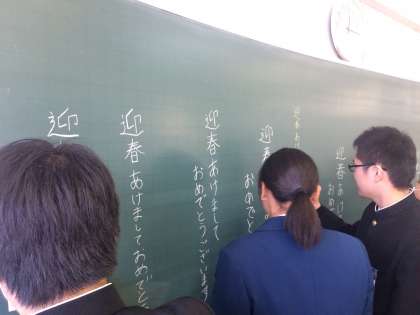 迎春あけ
おめ
迎春あけ
迎春
おめでと
迎春あけまして
おめでとうございます
迎春あけましておめでと
迎